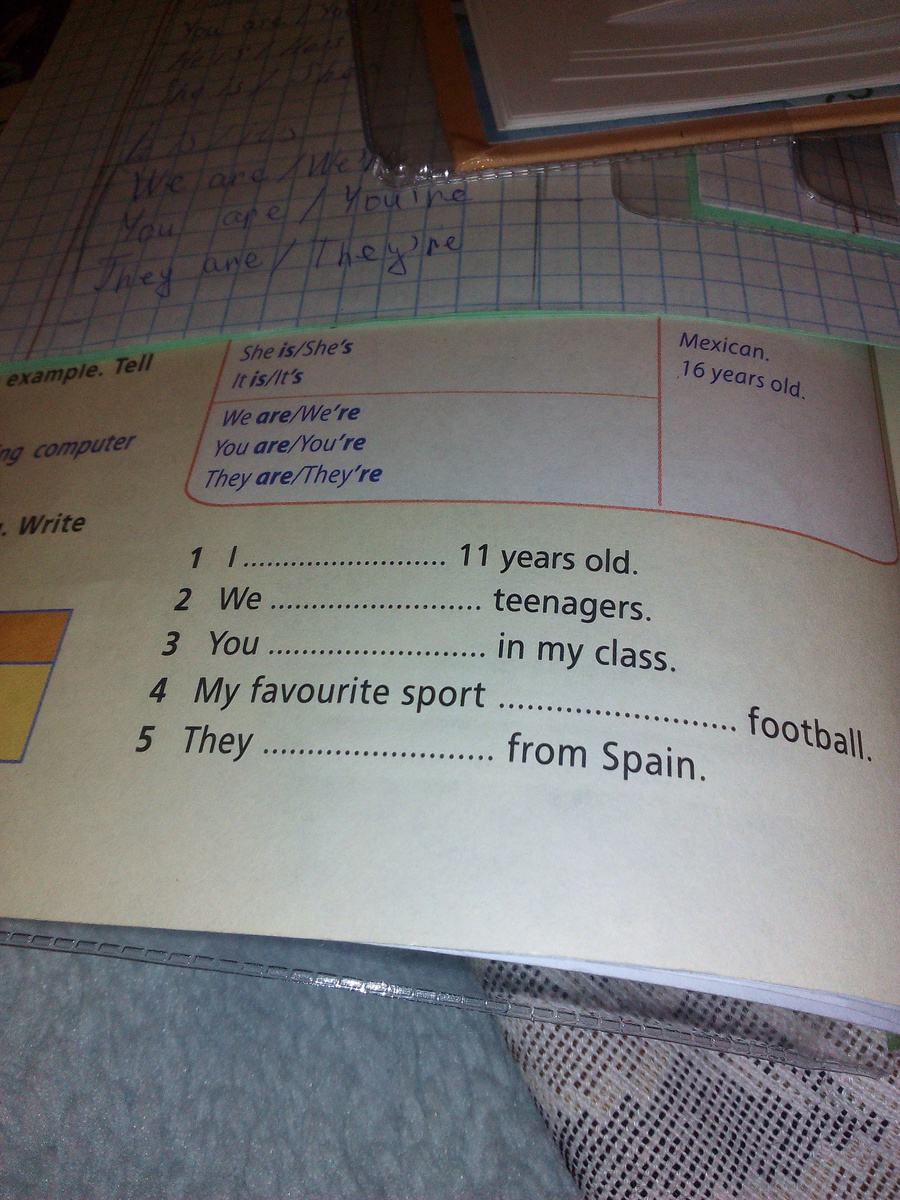 You are / You
He is / He is
She is / She
We are / We'
You are / You're
They are / They're
example. Tell
ng computer
. Write
She is/She's
It is/It's
We are/We're
You are/You're
They are/They're
Mexican.
16 years old.
1 I ......................... 11 years old.
2 We .......................... teenagers.
3 You .......................... in my class.
4 My favourite sport ............................ football.
5 They ............................ from Spain.